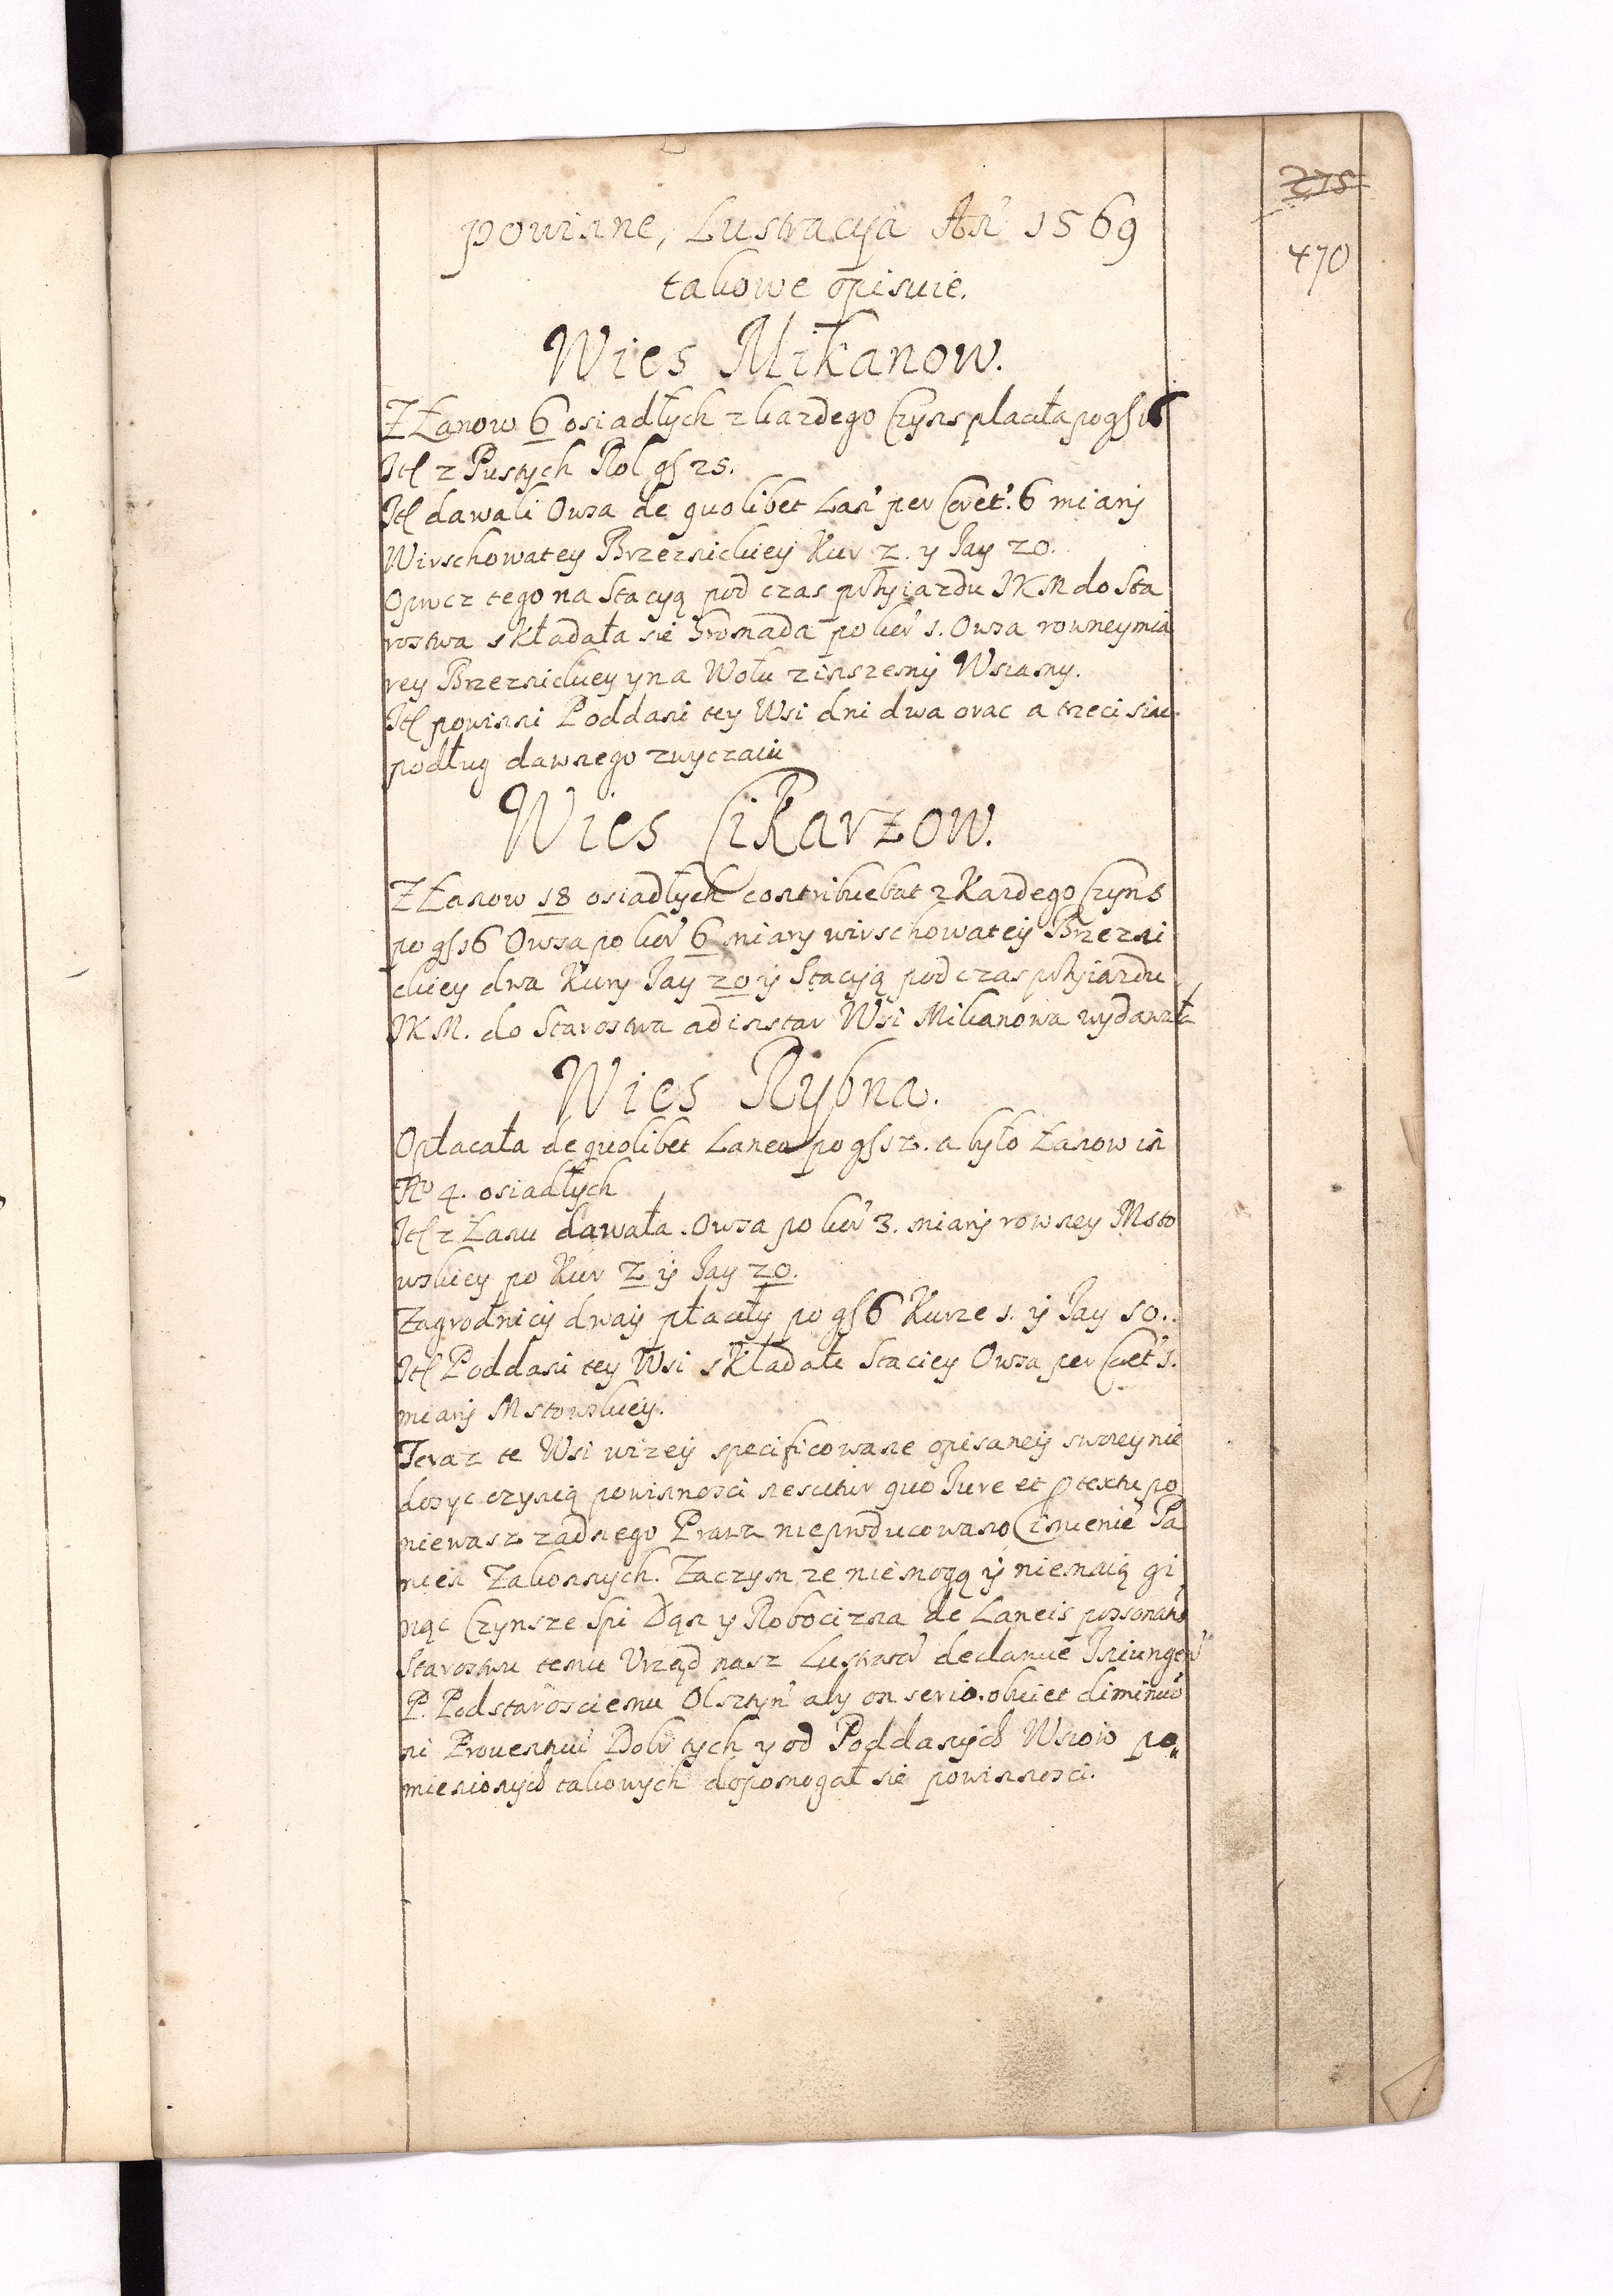 275
470
powinne, Lustracya An̄ 1569
takowe opisuie.
Wies Mikanow.
Z Łanow 6 osiadłych z kazdego Czyns placiła po gſ 16
Itſ z Pustych Rol gſ 25.
Itſ dawali Owsa de quolibet Lan̄ per Coret. 6 miary
Wirschowatey Brzeznickiey Kur 2. y Jay 20.
Oprocz tego na Stacyą pod czas przyiazdu JKM do Sta
rostwa składała sie Gromada po kor 1. Owsa rowney mia
rey Brzeznickiey y na Wołu zinszemy Wsiamy.
Itſ powinni Poddani tey Wsi dni dwa orac a trzeci siac
podług dawnego zwyczaiu
Wies Cikarzow.
Z Łanow 18 osiadłych contribuebat z Kazdego Czyns
po gſ 16 Owsa po kor 6 miary wirschowatey Brzezni
ckiey dwa Kury Jay 20 y Stacyją pod czas przyiazdu
JKM. do Starostwa ad instar Wsi Mikanowa wydawała
Wies Rybna.
Opłacała de quolibet Laneo po gſ 12. a było Łanow in
No 4. osiadłych
Itſ z Łanu dawała Owsa po kor 3. miary rowney Msto
wskiey po Kur 2 y Jay 20.
Zagrodnicy dway płaciły po gſ 6 Kurze 1. y Jay 10.
Itſ Poddani tey Wsi składałi Staciey Owsa per Coret 1.
miary Mstowskiey.
Teraz te Wsi wizey specificowane opisaney swoiey nie
dosyc czynią powinnosci nescitur quo Jure et ptextu po
niewasz zadnego Prawa nie producowano Imieniē Pa
nien Zakonnych. Zaczym ze nie mogą y nie maią gi
nąc Czynsze Spi Dąn y Robocizna de Laneis personan
Starostwu temu Urząd nasz Lustrator declaruie Iniungen
P. Podstarosciemu Olsztyn̄ aby on serio obuiet diminuō
ni Prouentui Dobr tych y od Poddanych Wsiow po„
mienionych takowych dopomogał sie powinnosci.